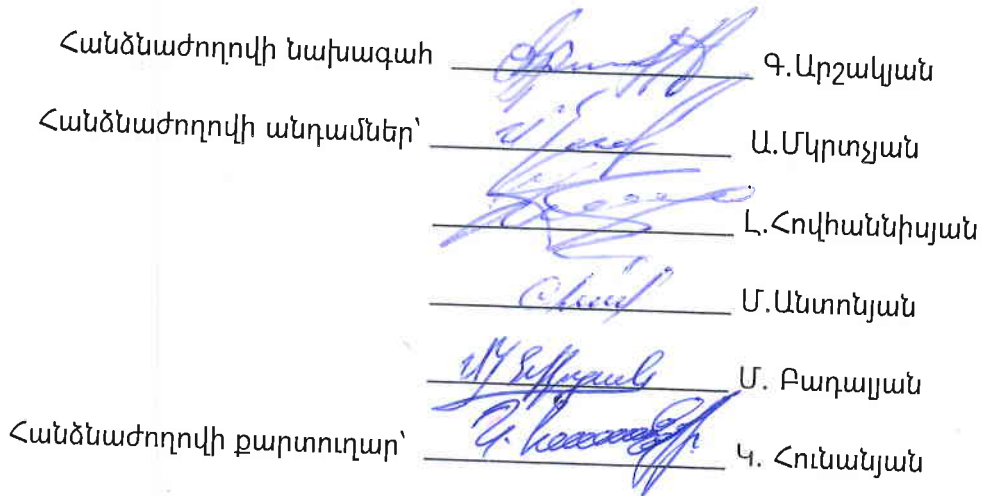 Հանձնաժողովի նախագահ Գ.Արշակյան
Հանձնաժողովի անդամներ՝ Ա.Մկրտչյան
Լ.Հովհաննիսյան
Մ.Անտոնյան
Մ. Բադալյան
Հանձնաժողովի քարտուղար՝ Կ. Հունանյան